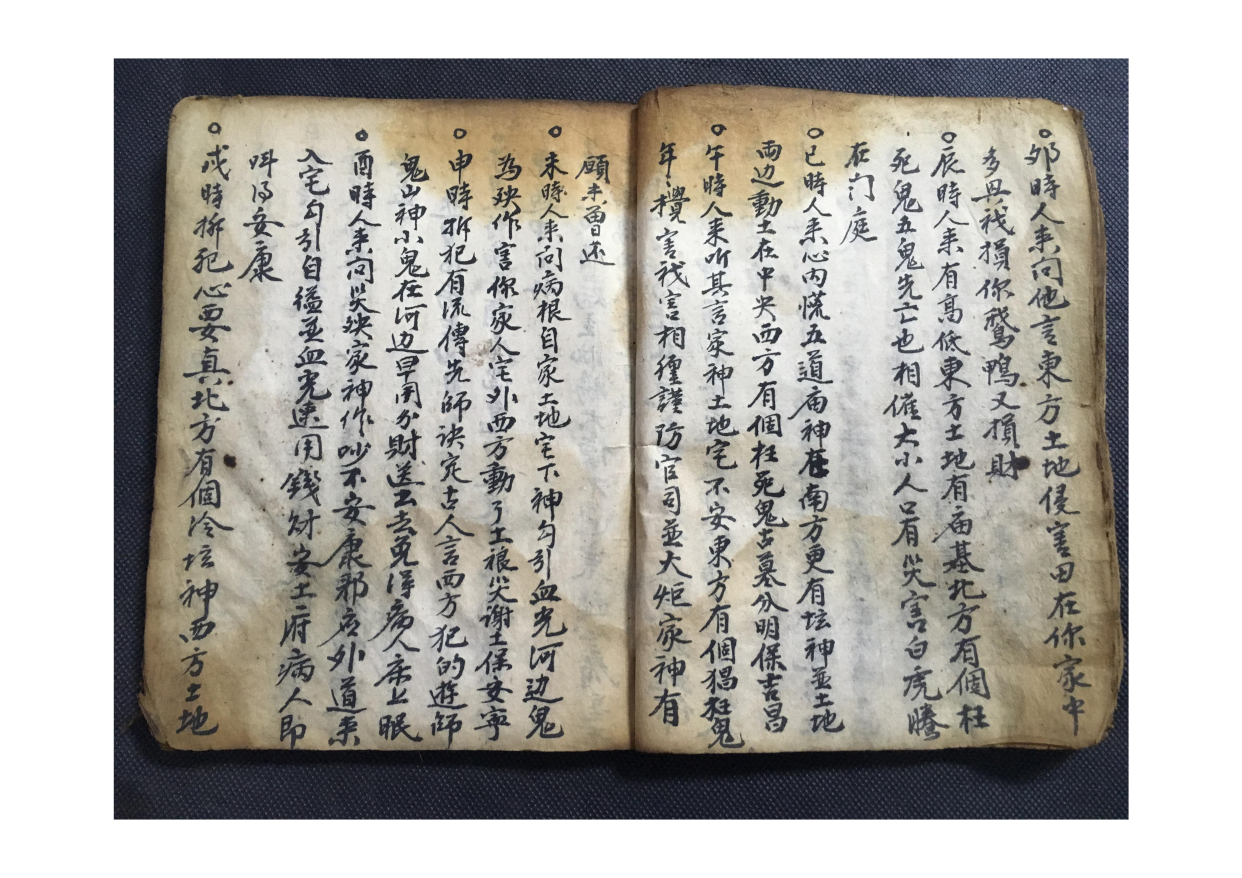 ○卯時人来问他言東方土地侵害田在你家中
多興祅損你鵞鴨又損財
○辰時人来有高低東方土地有庙基北方有個枉
死鬼五鬼先亡也相催大小人口有災害白虎騰
在门庭
○巳時人来心内慌五道庙神在南方更有坛神並土地
両边動土在中央西方有個枉死鬼古墓分明保吉昌
○午時人来听其言家神土地宅不安東方有個猖狂鬼
年攪害祅害相纏謹防官司並大炬家神有
願未曽还
○未時人来问病根自家土地宅下神勾引血光河边鬼
為殃作害你家人宅外西方動了土禳災謝土保安寧
○申時拆犯有流傳先師訣定古人言西方犯的遊師
鬼山神小鬼在河边早用分財送出去免得病人床上眠
○酉時人来问災殃家神作吵不安康邪店外道来
入宅勾引自縊並血光速用錢财安土府病人即
呌得安康
○戍時拆犯心要真北方有個冷坛神西方土地